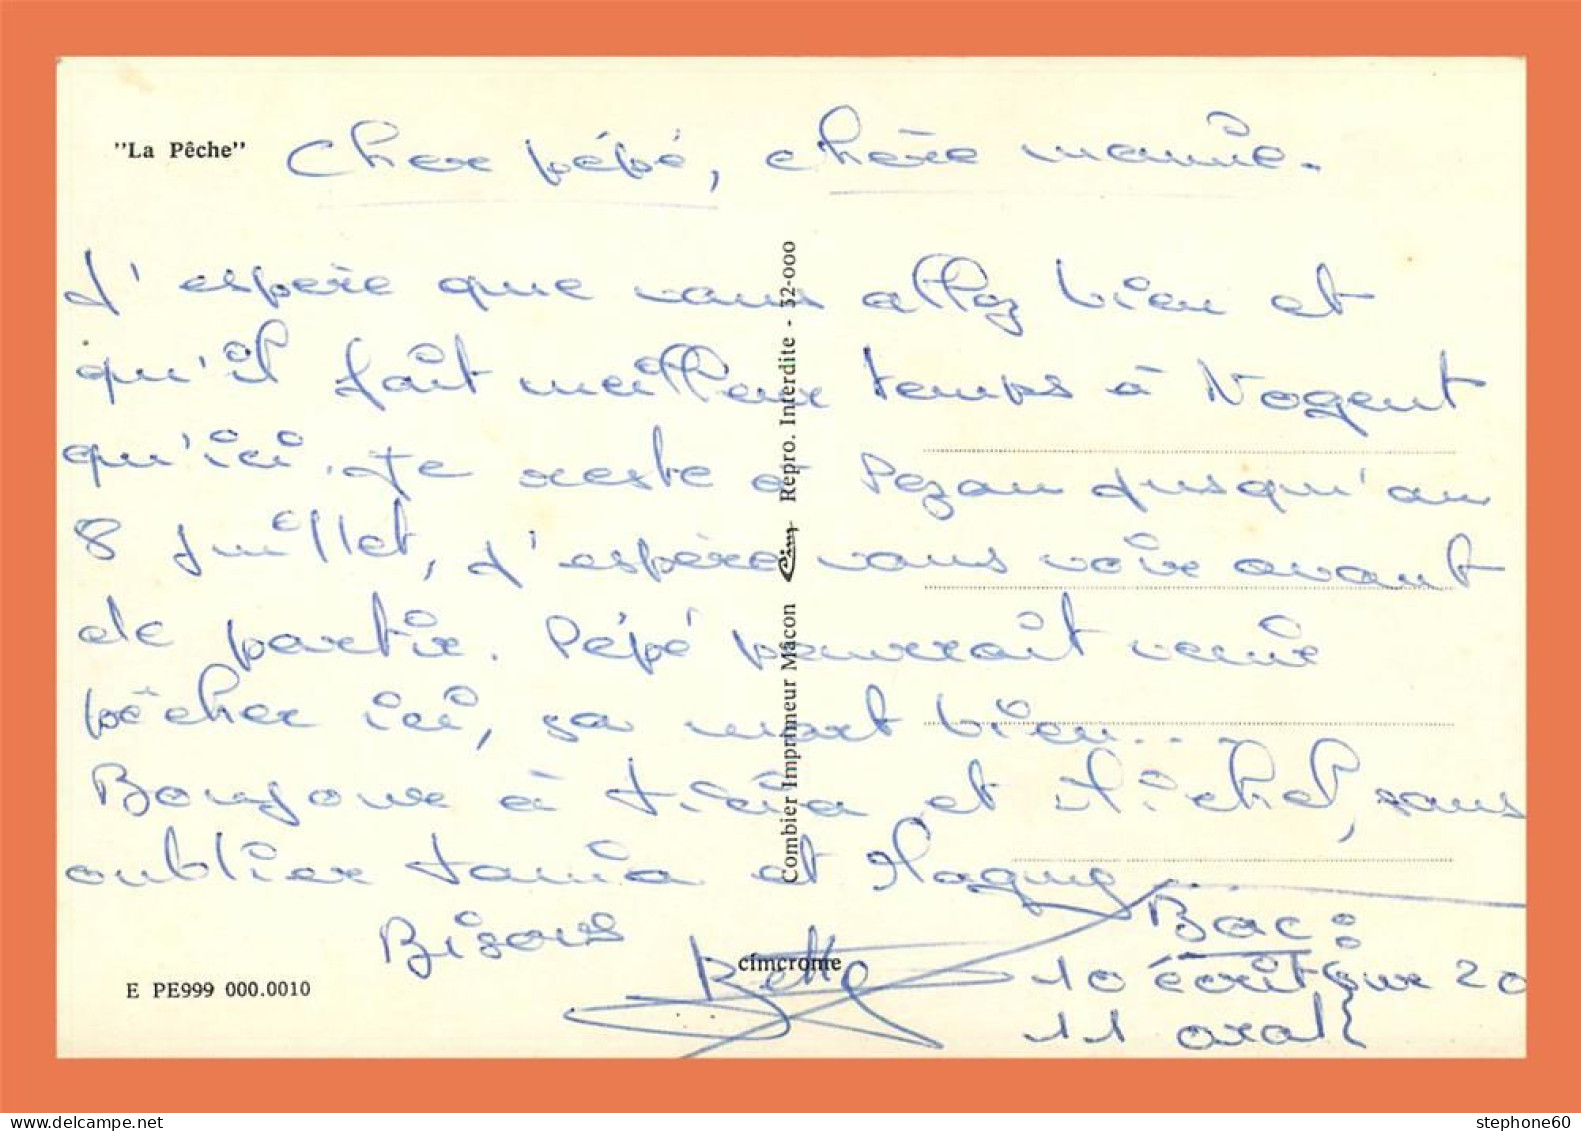 "La Pêche"
Cher pépé, chère mamie.
J'espère que vous allez bien et
qu'il fait meilleur temps à Nogent
qu'ici. Je reste à Pezou jusqu'au
8 juillet, j'espère vous voir avant
de partir. Pépé pourrait venir
pêcher ici, ça mort bien...
Bonjour à et Michel, sans
oublier Tania et Maguy...
Bisous
Betty
Bac:
10 écrit sur 20
11 oral
E PE999 000.0010
cimcrome
Combier Imprimeur Mâcon Cim Repro. Interdite - 32-000
stephone60